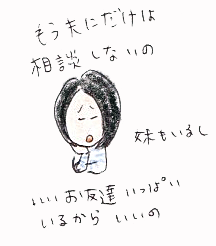 もう夫にだけは
相談しないの
妹もいるし
いいお友達いっぱい
いるからいいの